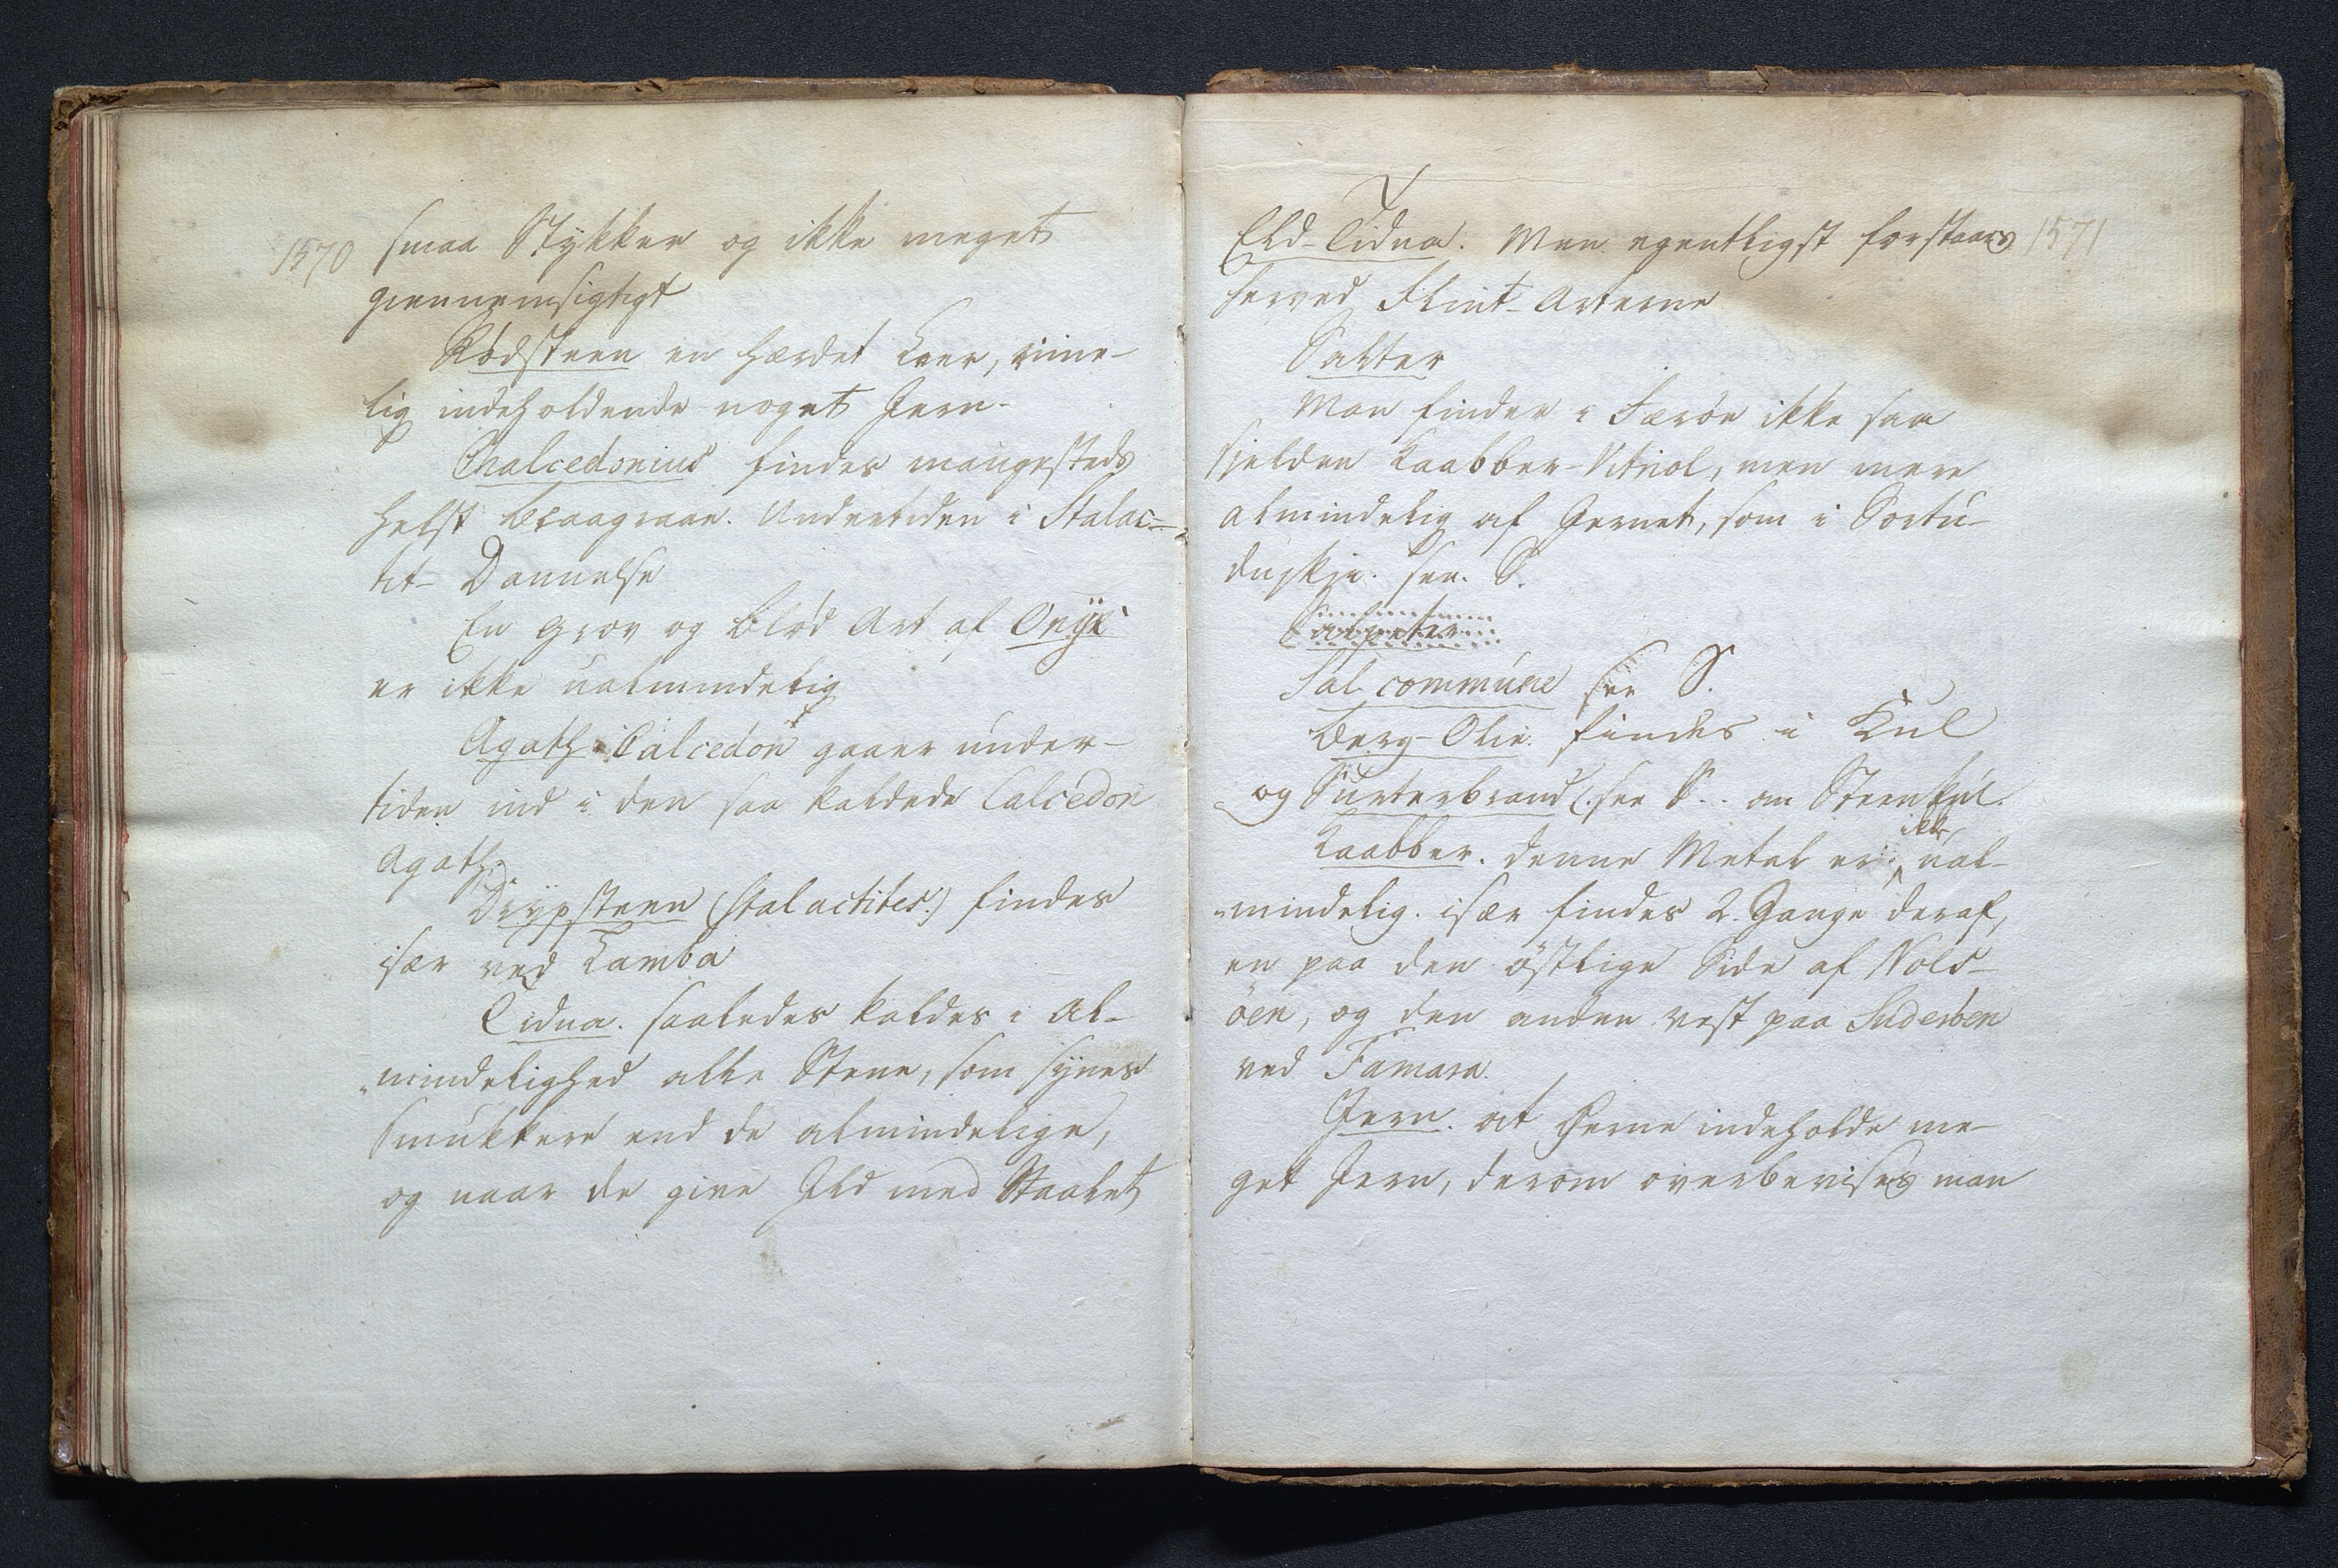 1570
smaa Stykker og ikke meget
giennemsigtigt
Rødsteen en hærdet Leer, rime-
lig indeholdende noget Jern-
Chalcedonius findes mangesteds
helst blaagraae. Undertiden i Stalac-
tit- Dannelse
En grov og blød Art af Onyx
er ikke ualmindelig
Agath-Calcedon gaaer under-
tiden ind i den saa kaldede Calcedon
Agath.
Drypsteen (Stalactites.) findes
især ved Lamba
Tidna. saaledes kaldes i Al-
mindelighed alle Stene, som synes
smukkere end de almindelige,
og naar de give Ild med Staalet
1571
Eld-Tidna. Men egentligst forstaaes
herved Flint-Arterne
Salter
Man finder i Færöe ikke saa
sjelden Kaabber-Vitriol, men mere
almindelig af Jernet, som i Sortu-
duskje. see. S.
Salpeter
Sal commúne see S.
Berg-Olie. findes i Kul
og Surterbrand (. see S.. om Steenkúl.
Kaabber. denne Metal er ikke ual-
mindelig. især findes 2. Gange deraf,
en paa den östlige Side af Nols-
öen, og den anden vest paa Suderöen
ved Famara.
Jern. at Øerne indeholde me-
get Jern, derom overbevises man